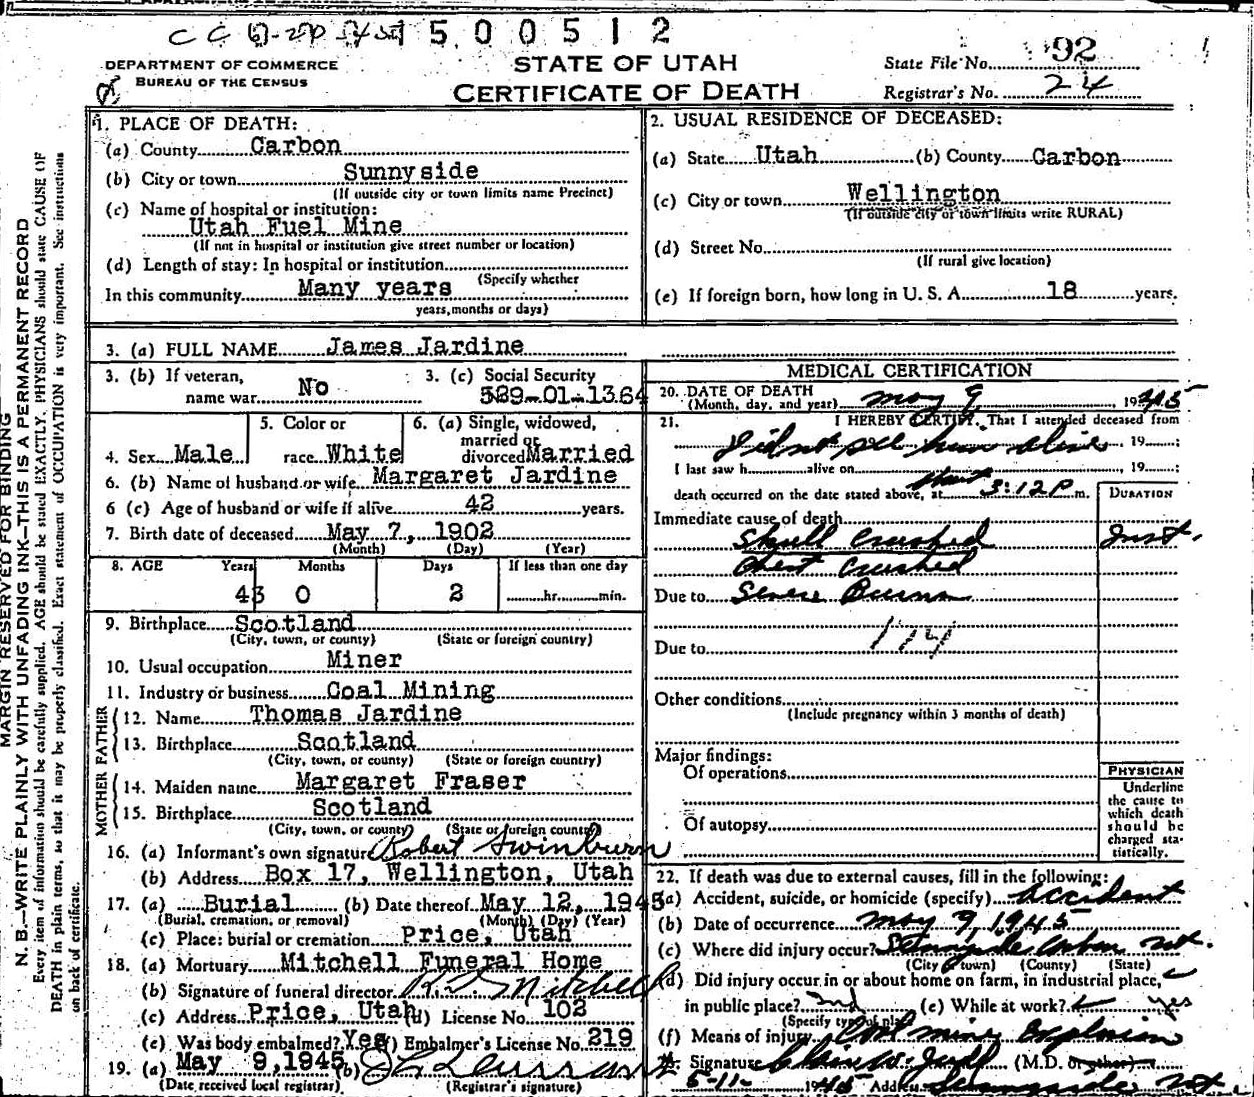 500512
DEPARTMENT OF COMMERCE
BUREAU OF THE CENSUS
STATE OF UTAH
CERTIFICATE OF DEATH
State File No. 92
Registrar's No. 24
MARGIN RESERVED FOR BINDING
N. B.—WRITE PLAINLY WITH UNFADING INK—THIS IS A PERMANENT RECORD
Every item of information should be carefully supplied. AGE should be stated EXACTLY. PHYSICIANS should state CAUSE OF
DEATH in plain terms, so that it may be properly classified. Exact statement of OCCUPATION is very important. See instructions
on back of certificate.
1. PLACE OF DEATH:
(a) County Carbon
(b) City or town Sunnyside
(If outside city or town limits name Precinct)
(c) Name of hospital or institution:
Utah Fuel Mine
(If not in hospital or institution give street number or location)
(d) Length of stay: In hospital or institution
(Specify whether
In this community Many years
years, months or days)
2. USUAL RESIDENCE OF DECEASED:
(a) State Utah (b) County Carbon
(c) City or town Wellington
(If outside city or town limits write RURAL)
(d) Street No.
(If rural give location)
(e) If foreign born, how long in U. S. A. 18 years.
3. (a) FULL NAME James Jardine
3. (b) If veteran, name war No
3. (c) Social Security 529-01-1364
4. Sex Male
5. Color or race White
6. (a) Single, widowed, married or divorced Married
6. (b) Name of husband or wife Margaret Jardine
6 (c) Age of husband or wife if alive 42 years.
7. Birth date of deceased May 7, 1902
(Month) (Day) (Year)
8. AGE Years Months Days If less than one day
43 0 2 hr. min.
9. Birthplace Scotland
(City, town, or county) (State or foreign country)
10. Usual occupation Miner
11. Industry or business Coal Mining
FATHER
12. Name Thomas Jardine
13. Birthplace Scotland
(City, town, or county) (State or foreign country)
MOTHER
14. Maiden name Margaret Fraser
15. Birthplace Scotland
(City, town, or county) (State or foreign country)
16. (a) Informant's own signature Robert Swinburn
(b) Address Box 17, Wellington, Utah
17. (a) Burial (b) Date thereof May 12, 1945
(Burial, cremation, or removal) (Month) (Day) (Year)
(c) Place: burial or cremation Price, Utah
18. (a) Mortuary Mitchell Funeral Home
(b) Signature of funeral director Mitchell
(c) Address Price, Utah (d) License No. 102
(e) Was body embalmed? Yes (f) Embalmer's License No. 219
19. (a) May 9, 1945 (b)
(Date received local registrar) (Registrar's signature)
MEDICAL CERTIFICATION
20. DATE OF DEATH
(Month, day, and year) May 9, 1945
21. I HEREBY CERTIFY, That I attended deceased from
Did not see him alive 19 ;
I last saw h alive on , 19 ;
death occurred on the date stated above, at about 3:12 P m.
DURATION
Immediate cause of death
Skull Crushed Inst.
Chest Crushed
Due to Severe Burns
174
Due to
Other conditions
(Include pregnancy within 3 months of death)
Major findings:
Of operations
Of autopsy
PHYSICIAN
Underline
the cause to
which death
should be
charged sta-
tistically.
22. If death was due to external causes, fill in the following:
(a) Accident, suicide, or homicide (specify) Accident
(b) Date of occurrence May 9, 1945
(c) Where did injury occur? Sunnyside Carbon Ut.
(City or town) (County) (State)
(d) Did injury occur in or about home on farm, in industrial place,
in public place? Ind (e) While at work? Yes
(Specify type of place)
(f) Means of injury Coal mine Explosion
Signature (M.D. or other)
5-11- 1945 Address Sunnyside, Ut.